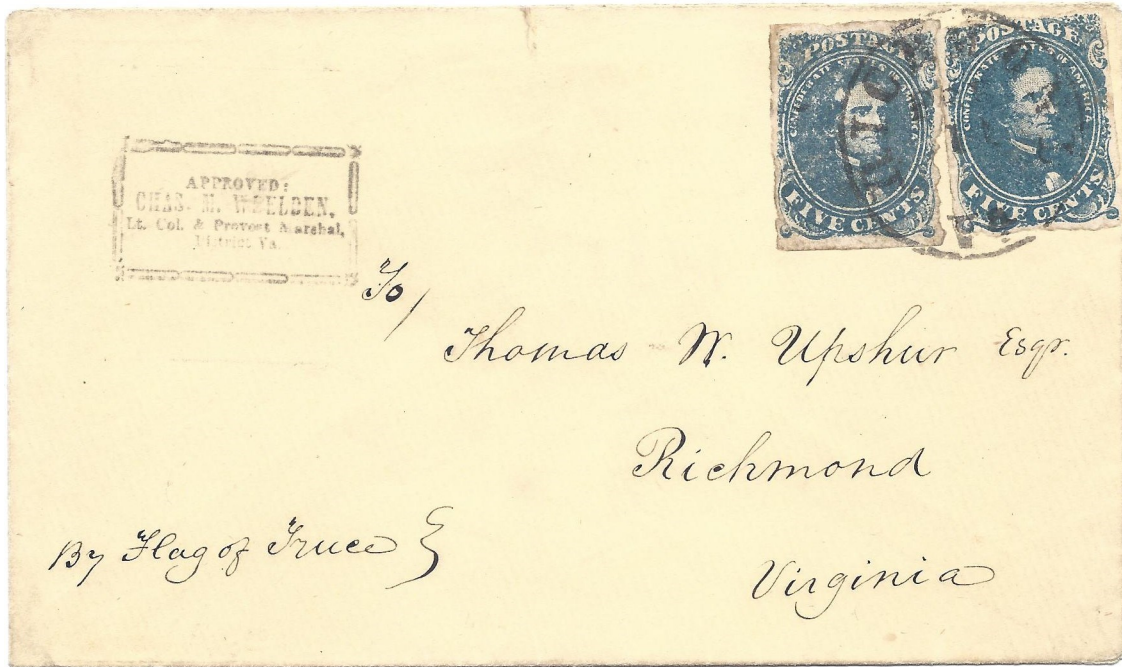 POSTAGE
CONFEDERATE STATES OF AMERICA
FIVE CENTS
POSTAGE
CONFEDERATE STATES OF AMERICA
FIVE CENTS
APPROVED:
CHAS. M. WHELDEN,
Lt. Col. & Provost Marshal,
District VA.
To
Thomas W. Upshur Esqr.
Richmond
Virginia
By Flag of Truce